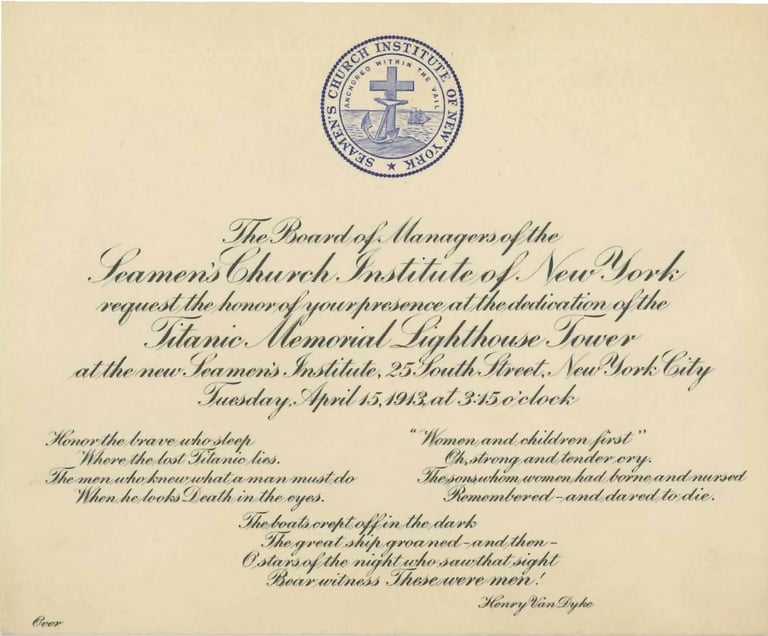 SEAMEN'S CHURCH INSTITUTE OF NEW YORK
ANCHORED WITHIN THE VAIL
The Board of Managers of the
Seamen's Church Institute of New York
request the honor of your presence at the dedication of the
Titanic Memorial Lighthouse Tower
at the new Seamen's Institute, 25 South Street, New York City
Tuesday, April 15, 1913, at 3:15 o'clock
Honor the brave who sleep
Where the lost Titanic lies.
The men who knew what a man must do
When he looks Death in the eyes.
"Women and children first"
Oh, strong and tender cry.
The sons whom women had borne and nursed
Remembered – and dared to die.
The boats crept off in the dark
The great ship groaned – and then –
O stars of the night who saw that sight
Bear witness These were men!
Henry Van Dyke
Over